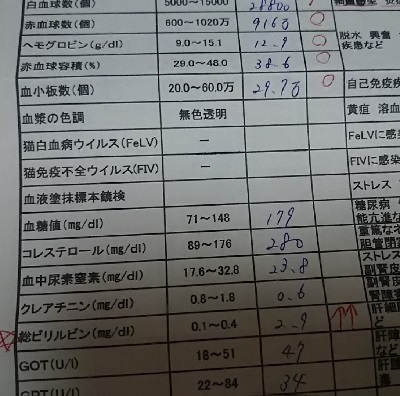 白血球数(個) 5000～15000 28800
赤血球数(個) 600～1020万 916万 ○
ヘモグロビン(g/dl) 9.0～15.1 12.9 ○ 脱水 興奮
疾患など
赤血球容積(%) 29.0～48.0 38.6 ○
血小板数(個) 20.0～60.0万 29.7万 ○ 自己免疫疾
血漿の色調 無色透明 黄疸 溶血
猫白血病ウイルス(FeLV) － FeLVに感染
猫免疫不全ウイルス(FIV) － FIVに感染
血液塗抹標本鏡検 ストレス
血糖値(mg/dl) 71～148 179 糖尿病
能亢進な
コレステロール(mg/dl) 89～176 280 重篤なネ
胆管閉塞
血中尿素窒素(mg/dl) 17.6～32.8 23.8 ストレス
副腎皮
クレアチニン(mg/dl) 0.8～1.8 0.6 副腎皮
腎障害
☆総ビリルビン(mg/dl) 0.1～0.4 2.9 ↑↑ 肝細胞
ど
GOT(U/l) 18～51 47 肝障
など
GPT(U/l) 22～84 34